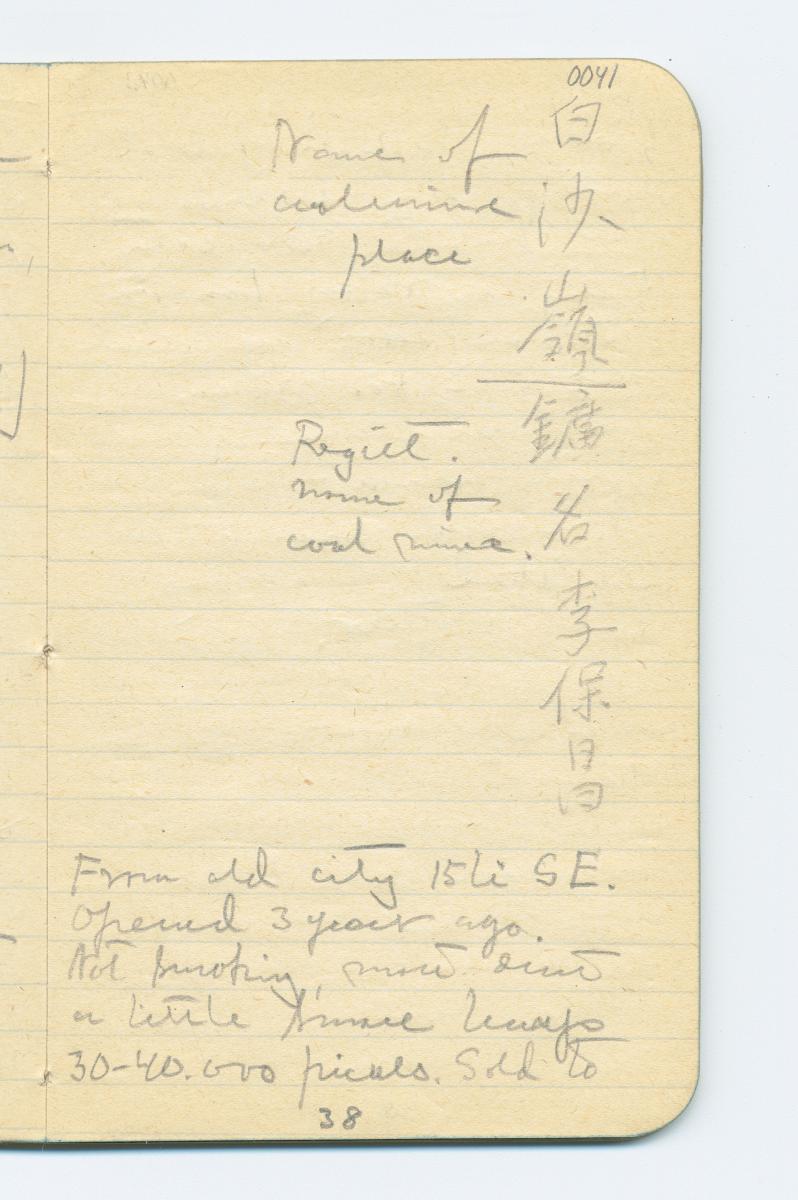 0041
Name of
coalmine
place
白沙嶺
Regist.
name of
coal mine.
鑛名李保昌
From old city 15 li SE.
Opened 3 years ago.
Not smoking, most dust
a little small lumps
30-40.000 piculs. Sold to
38